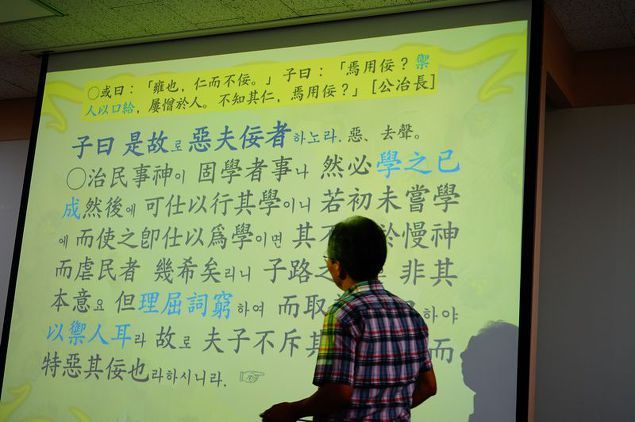 ○或曰：「雍也，仁而不佞。」子曰：「焉用佞？禦
人以口給，屢憎於人。不知其仁，焉用佞？」[公冶長]
子曰 是故로 惡夫佞者하노라. 惡、去聲。
○治民事神이 固學者事나 然必學之已
成然後에 可仕以行其學이니 若初未嘗學
에 而使之卽仕以爲學이면 其不 於慢神
而虐民者 幾希矣리니 子路之 非其
本意요 但理屈詞窮하여 而取 하야
以禦人耳라 故로 夫子不斥其 而
特惡其佞也라하시니라. ☞